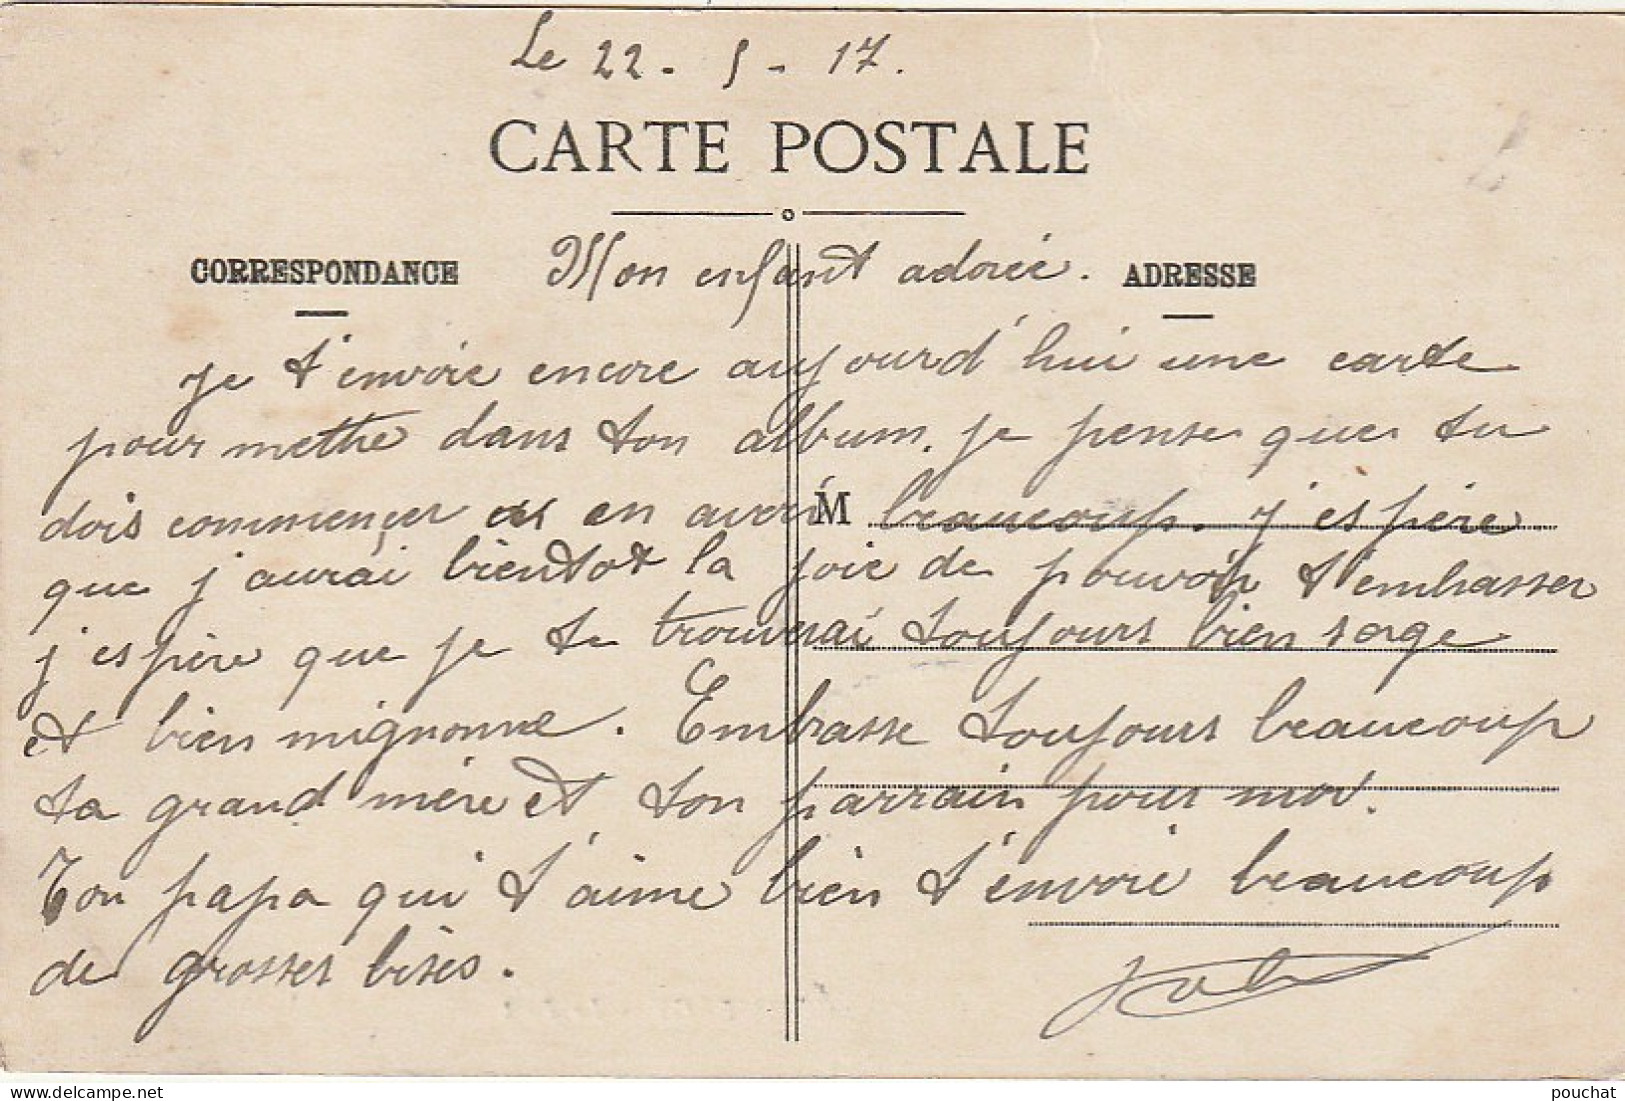 Le 22 - 5 - 17.
CARTE POSTALE
CORRESPONDANCE
Mon enfant adorée.
ADRESSE
je t'envoie encore aujourd'hui une carte
pour metthe dans ton album. je pense que tu
dois commençer en avoir M beaucoup. j'espère
que j'aurai bientot la joie de pouvoir t'embrasser
j'espère que je te trouverai toujours bien sage
et bien mignonne. Embrasse toujours beaucoup
ta grand mère et ton parrain pour moi.
Ton papa qui t'aime bien t'envoie beaucoup
de grosses bises.
delcampe.net
pouchat